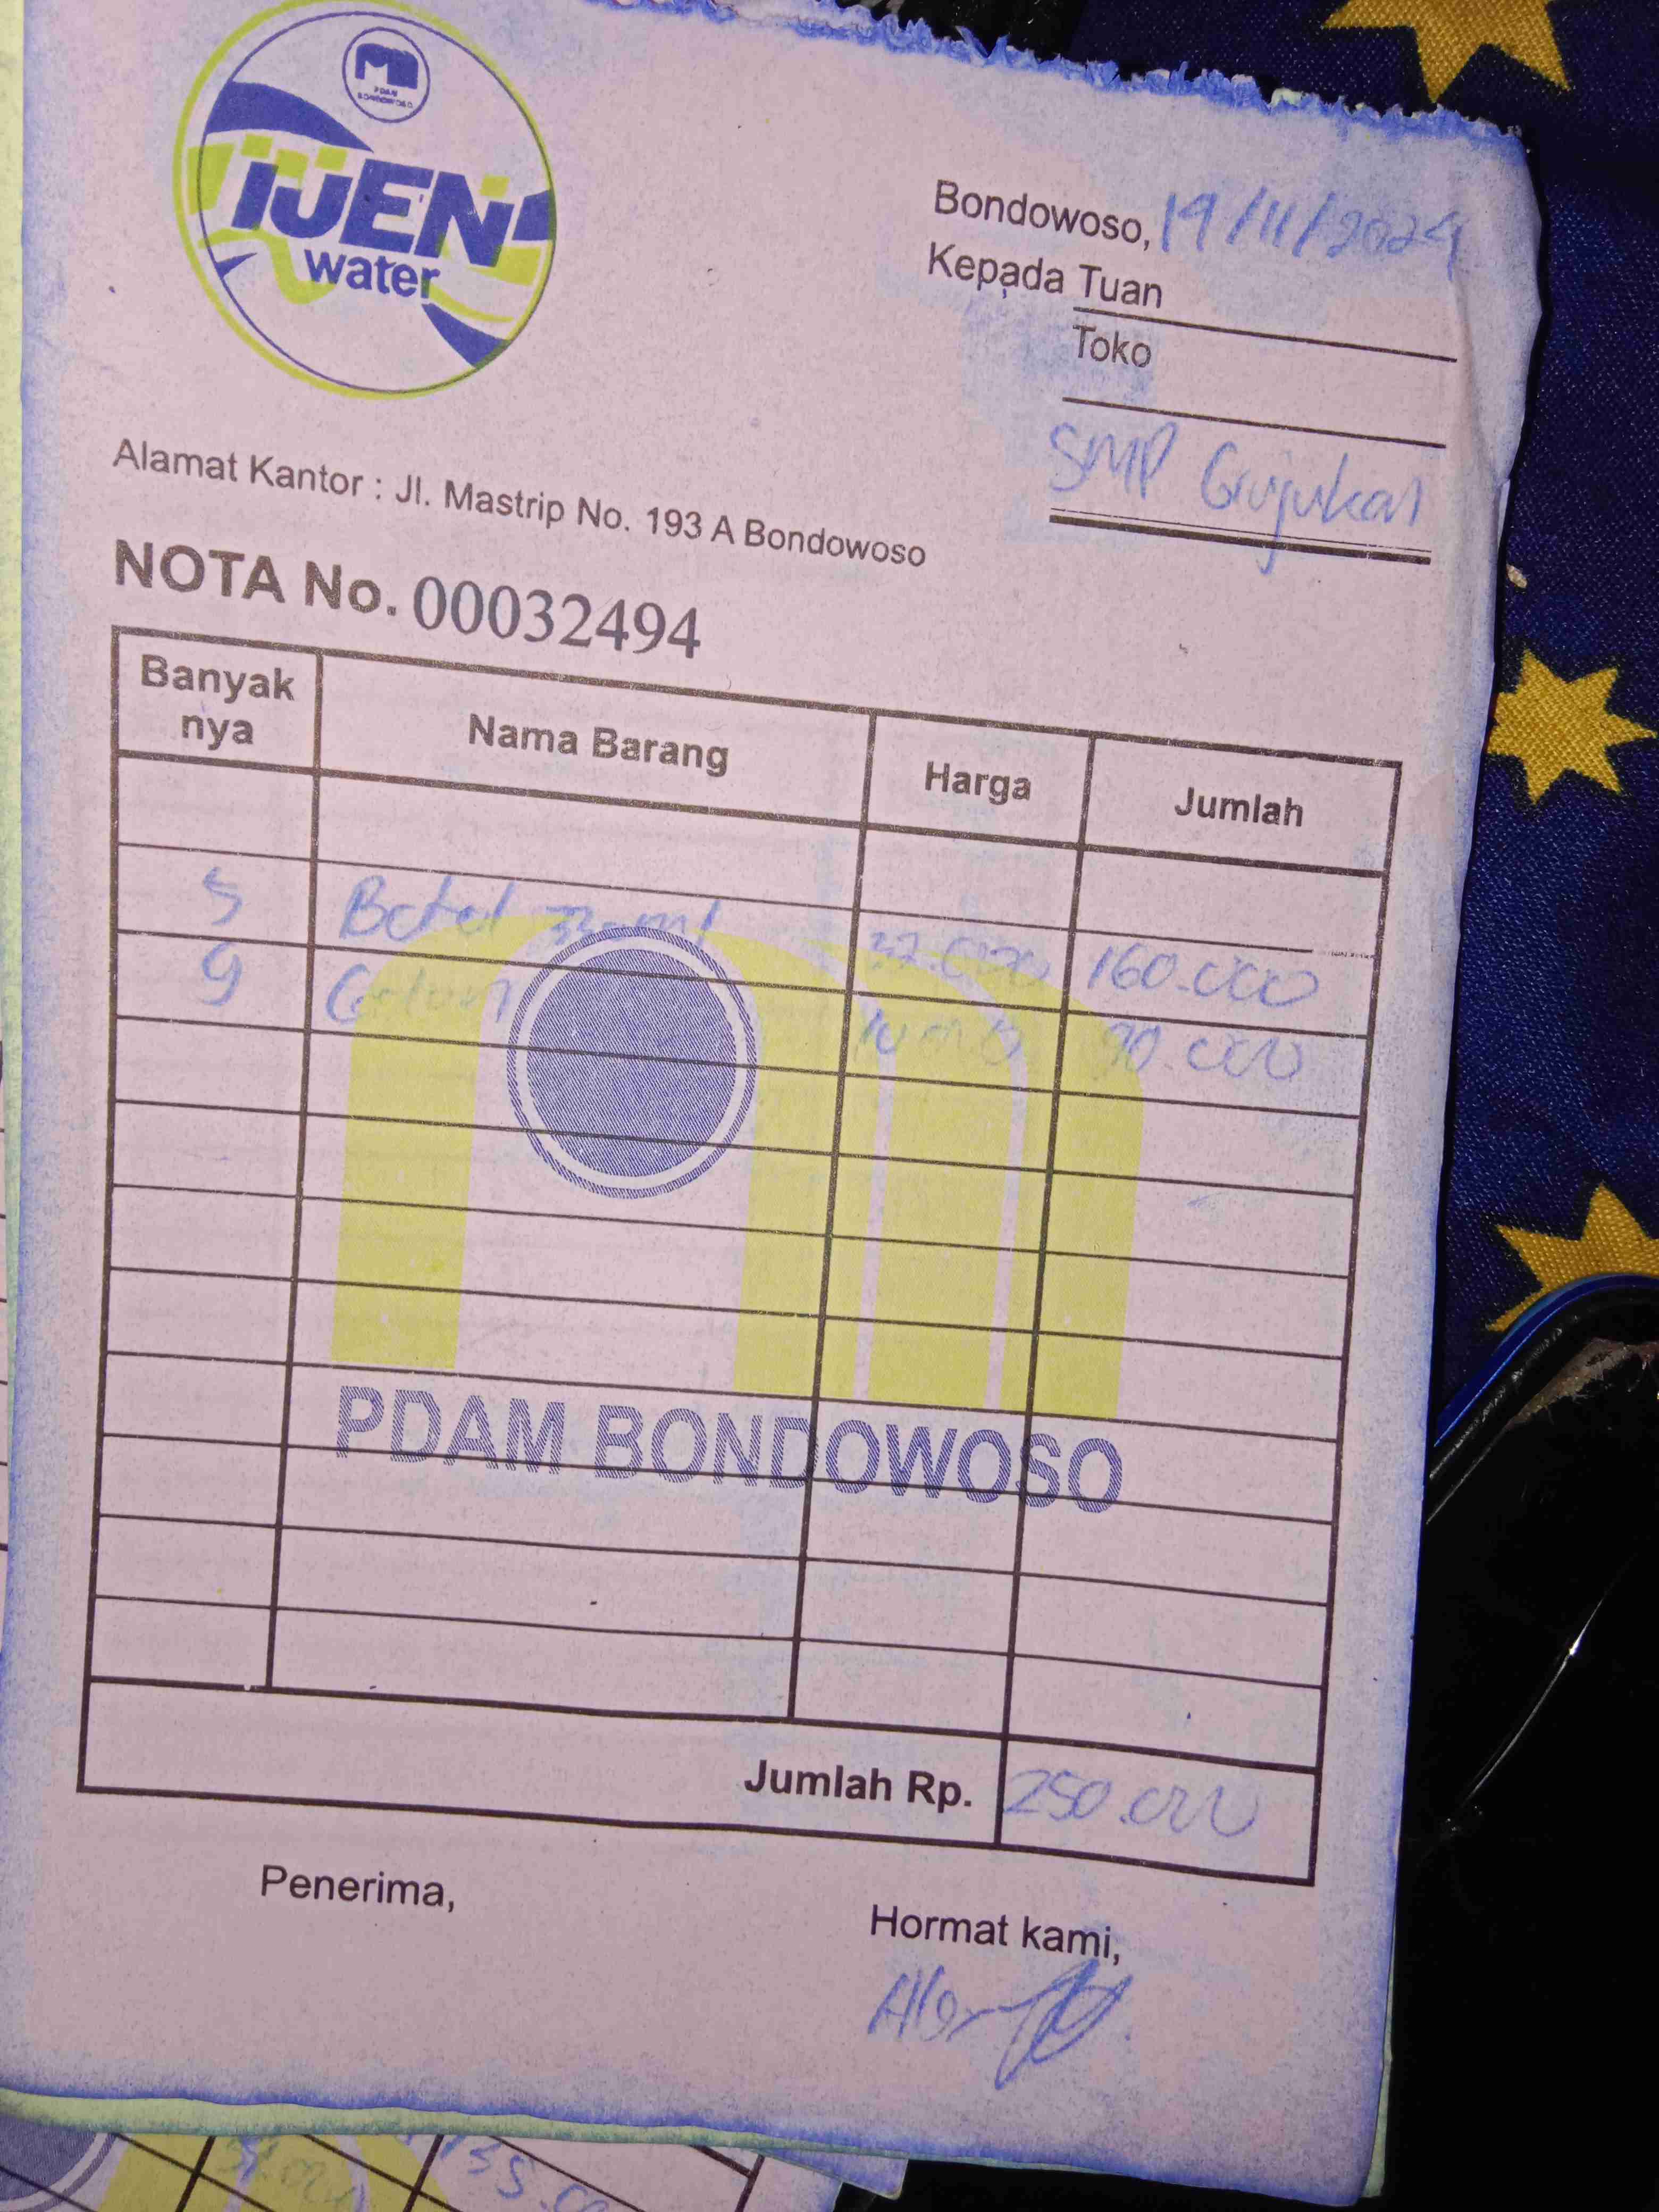 PDAM
BONDOWOSO
IJEN
water
Bondowoso, 19/11/2024
Kepada Tuan
Toko
SMP Grujukan
Alamat Kantor : Jl. Mastrip No. 193 A Bondowoso
NOTA No. 00032494
Banyak nya Nama Barang Harga Jumlah
5 Botol 330 ml 32.000 160.000
9 Galon 10.000 90.000
PDAM BONDOWOSO
Jumlah Rp. 250.000
Penerima,
Hormat kami,